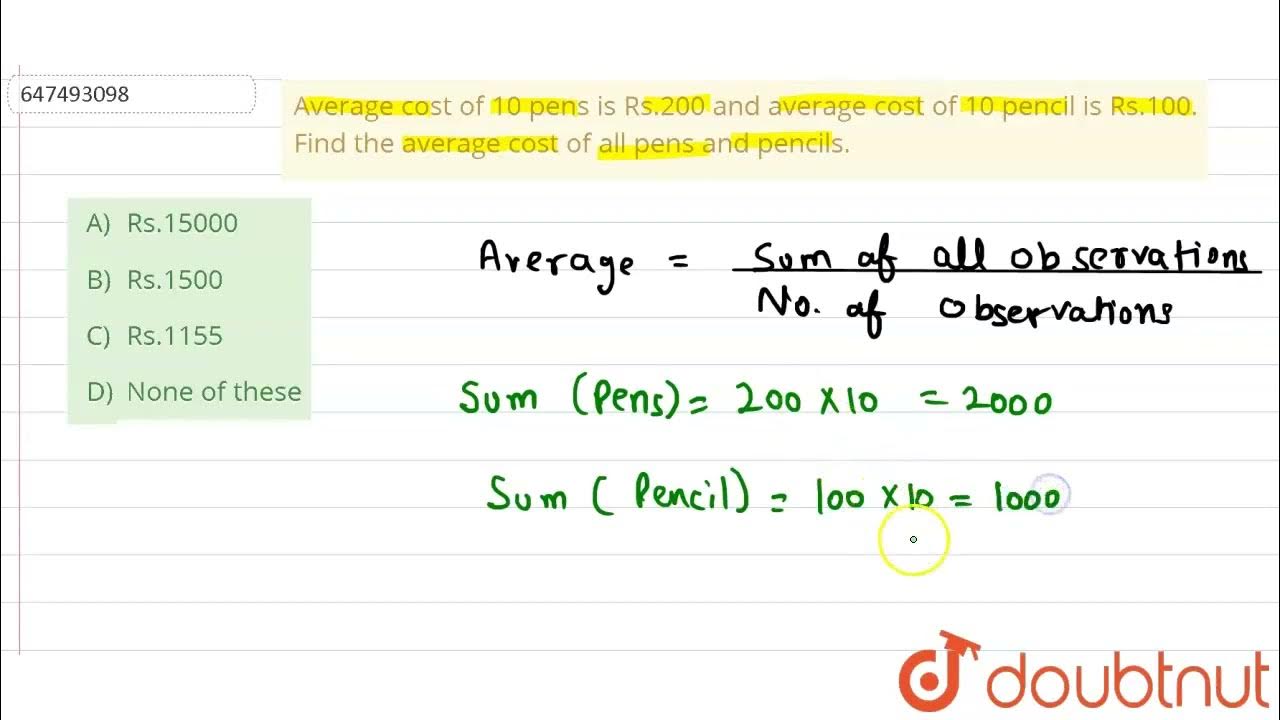 647493098
Average cost of 10 pens is Rs.200 and average cost of 10 pencil is Rs.100.
Find the average cost of all pens and pencils.
A) Rs.15000
B) Rs.1500
C) Rs.1155
D) None of these
Average = Sum of all observations
No. of observations
Sum (Pens) = 200 × 10 = 2000
Sum ( Pencil) = 100 × 10 = 1000
doubtnut